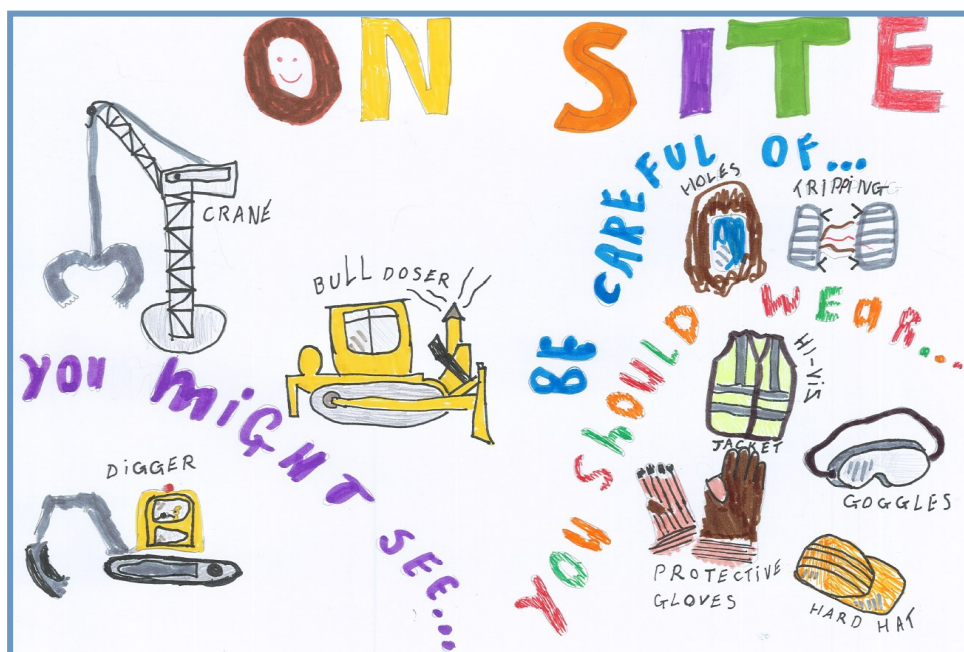 ON SITE
CRANE
BULL DOSER
YOU MiGHT SEE...
DiGGER
BE CAREFUL OF...
HOLES
TRIPPING
YOU ShOULD WEAR...
HI-ViS
JACKET
GOGGLES
PROTECTIVE
GLOVES
HARD HAT